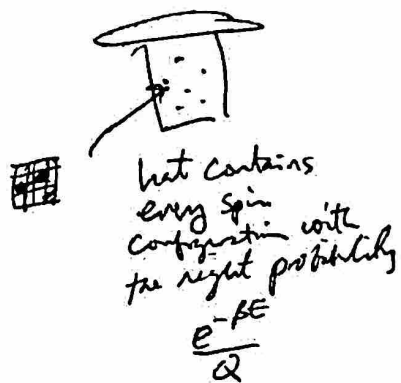 hat contains
every spin
configuration with
the right probability
e^{-βE}
Q